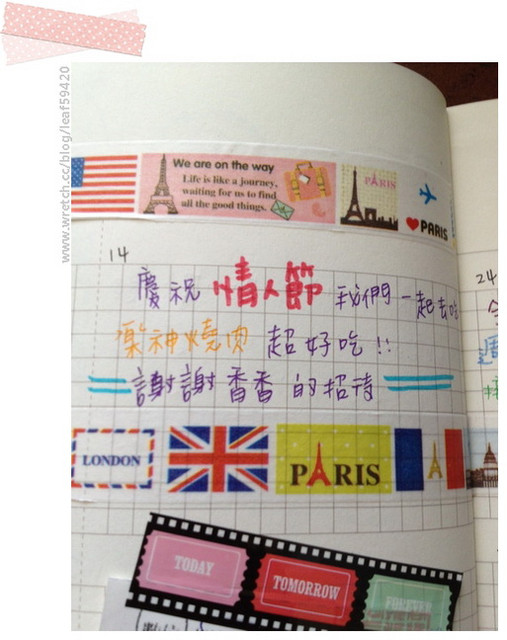 www.wretch.cc/blog/leaf59420
We are on the way
Life is like a journey,
waiting for us to find
all the good things.
PARIS
PARIS
14
慶祝情人節 我們一起去吃
24
樂神燒肉 超好吃!!
週
謝謝香香的招待
LONDON
PARIS
TODAY
TOMORROW
FOREVER